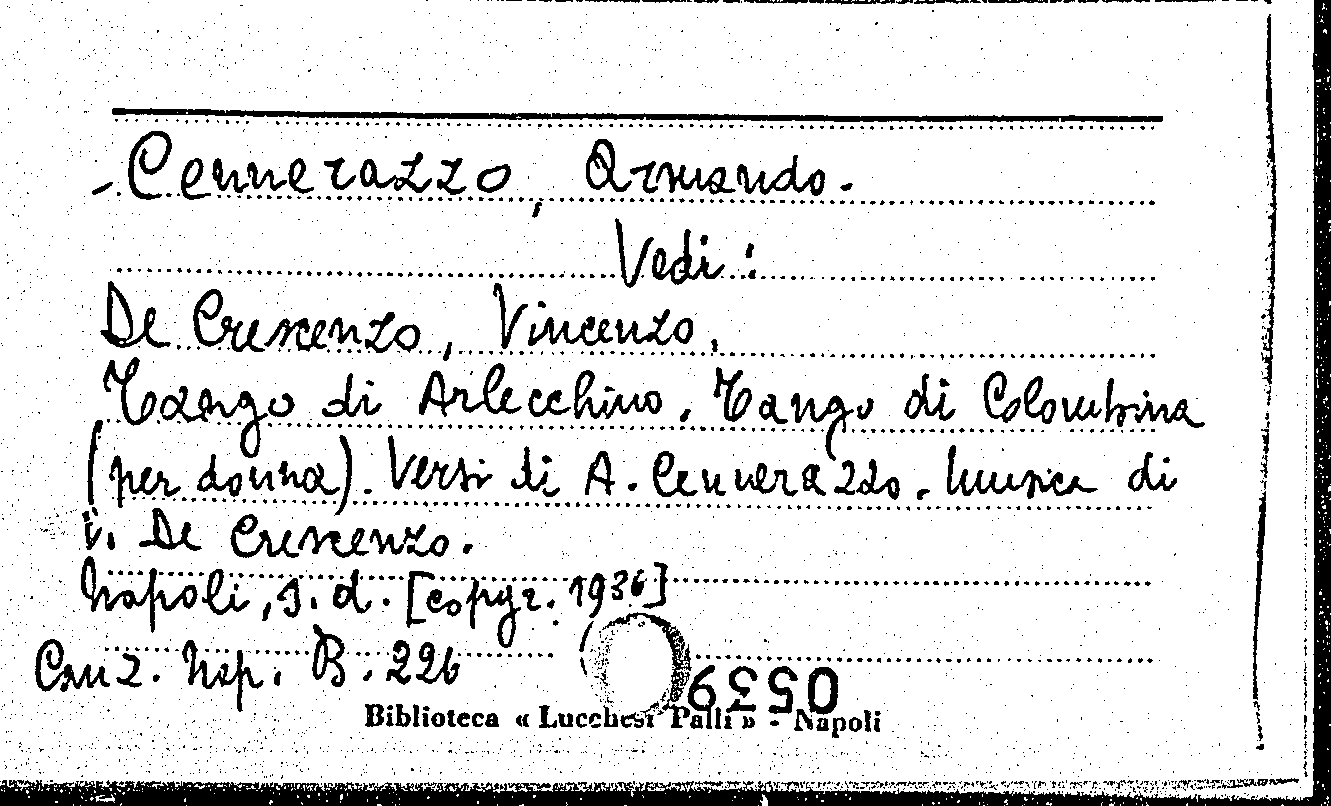 - Cennerazzo, Armando.
Vedi:
De Crescenzo, Vincenzo.
Tango di Arlecchino. Tango di Colombina
(per donna). Versi di A. Cennerazzo. Musica di
V. De Crescenzo.
Napoli, s. d. [copyr. 1936]
Canz. Nap. B. 226
Biblioteca « Lucchesi Palli » - Napoli